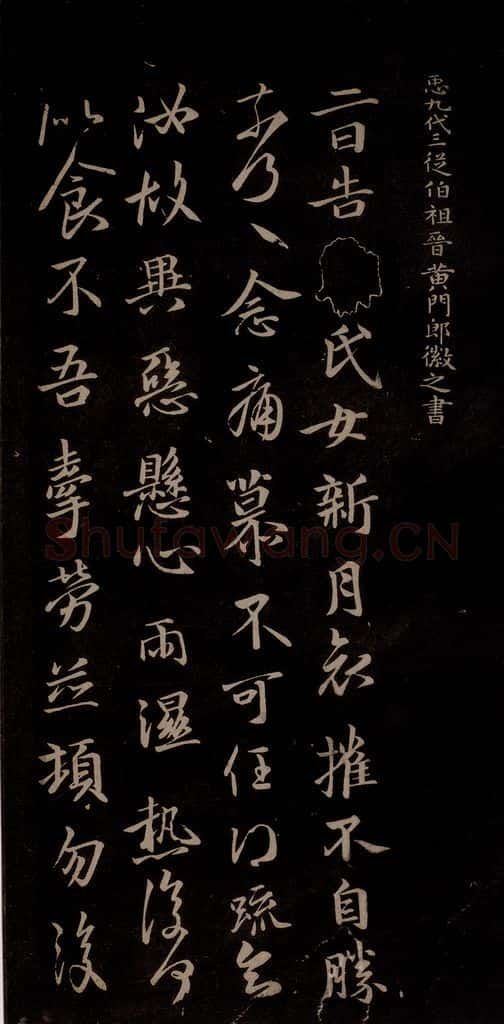 𢘑九代三從伯祖晉黄門郎徽之書
二日告氏女新月哀摧不自勝
奈何〻念痛慕不可任得疏知
汝故異惡懸心雨濕熱復何
似食不吾牽勞並頓勿復
ShutaWang.CN